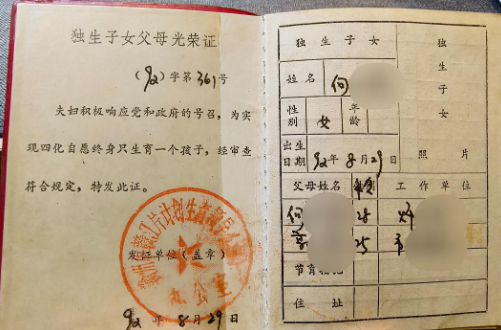 独生子女父母光荣证
(92)字第361号
夫妇积极响应党和政府的号召，为实
现四化自愿终身只生育一个孩子，经审查
符合规定，特发此证。
发证单位(盖章)
92年8月29日
独生子女
姓名 何
性别 女 年龄
出生日期 92年8月29日
独生子女
照片
父母姓名 年龄 工作单位
何 28
蔡 25
节育
住址